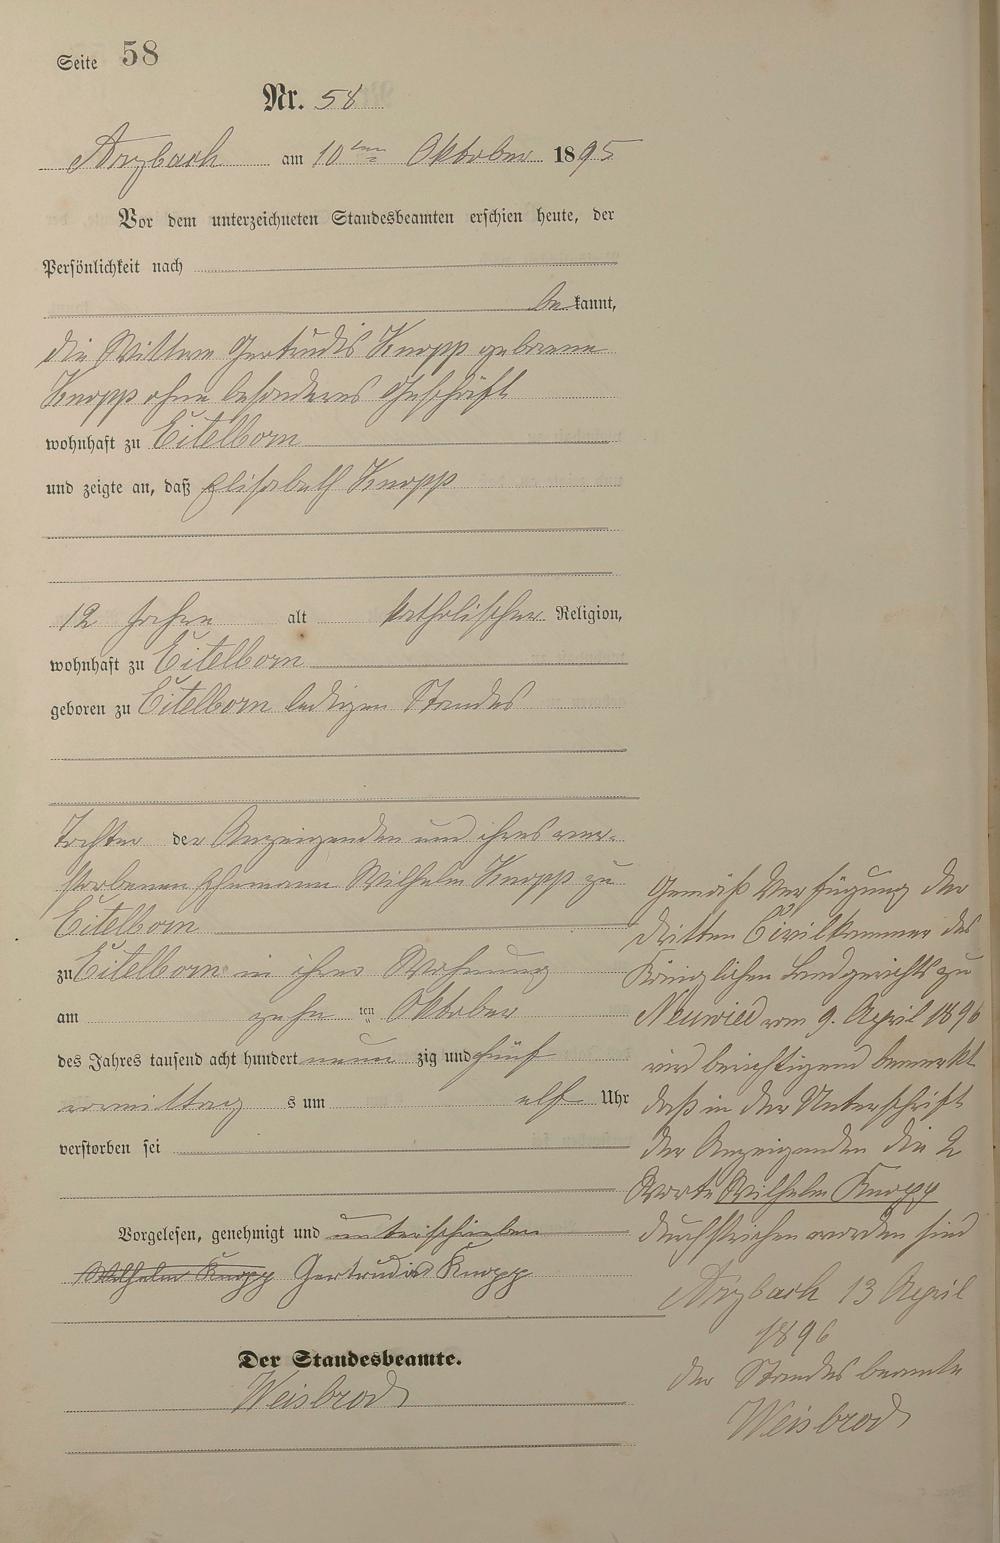 Seite 58
Nr. 58
Arzbach am 10ten Oktober 1895
Vor dem unterzeichneten Standesbeamten erschien heute, der
Persönlichkeit nach
be kannt,
die Wittwe Gertrudis Knopp geborene
Knopp ohne besonderes Geschäft
wohnhaft zu Eitelborn
und zeigte an, daß Elisabeth Knopp
12 Jahre alt katholischer Religion,
wohnhaft zu Eitelborn
geboren zu Eitelborn ledigen Standes
Tochter der Anzeigenden und ihres ver-
storbenen Ehemann Wilhelm Knopp zu
Eitelborn
zu Eitelborn in ihrer Wohnung
am zehn ten Oktober
des Jahres tausend acht hundert neun zig und fünf
vormittag s um elf Uhr
verstorben sei
Vorgelesen, genehmigt und unterschrieben
Wilhelm Knopp Gertrudis Knopp
Der Standesbeamte.
Weisbrod
Gemäß Verfügung der
dritten Civilkammer des
Königlichen Landgerichts zu
Neuwied vom 9. April 1896
wird berichtigend bemerkt
daß in der Unterschrift
der Anzeigenden die 2
Worte Wilhelm Knopp
durchstrichen worden sind
Arzbach 13 April
1896
der Standesbeamte
Weisbrod